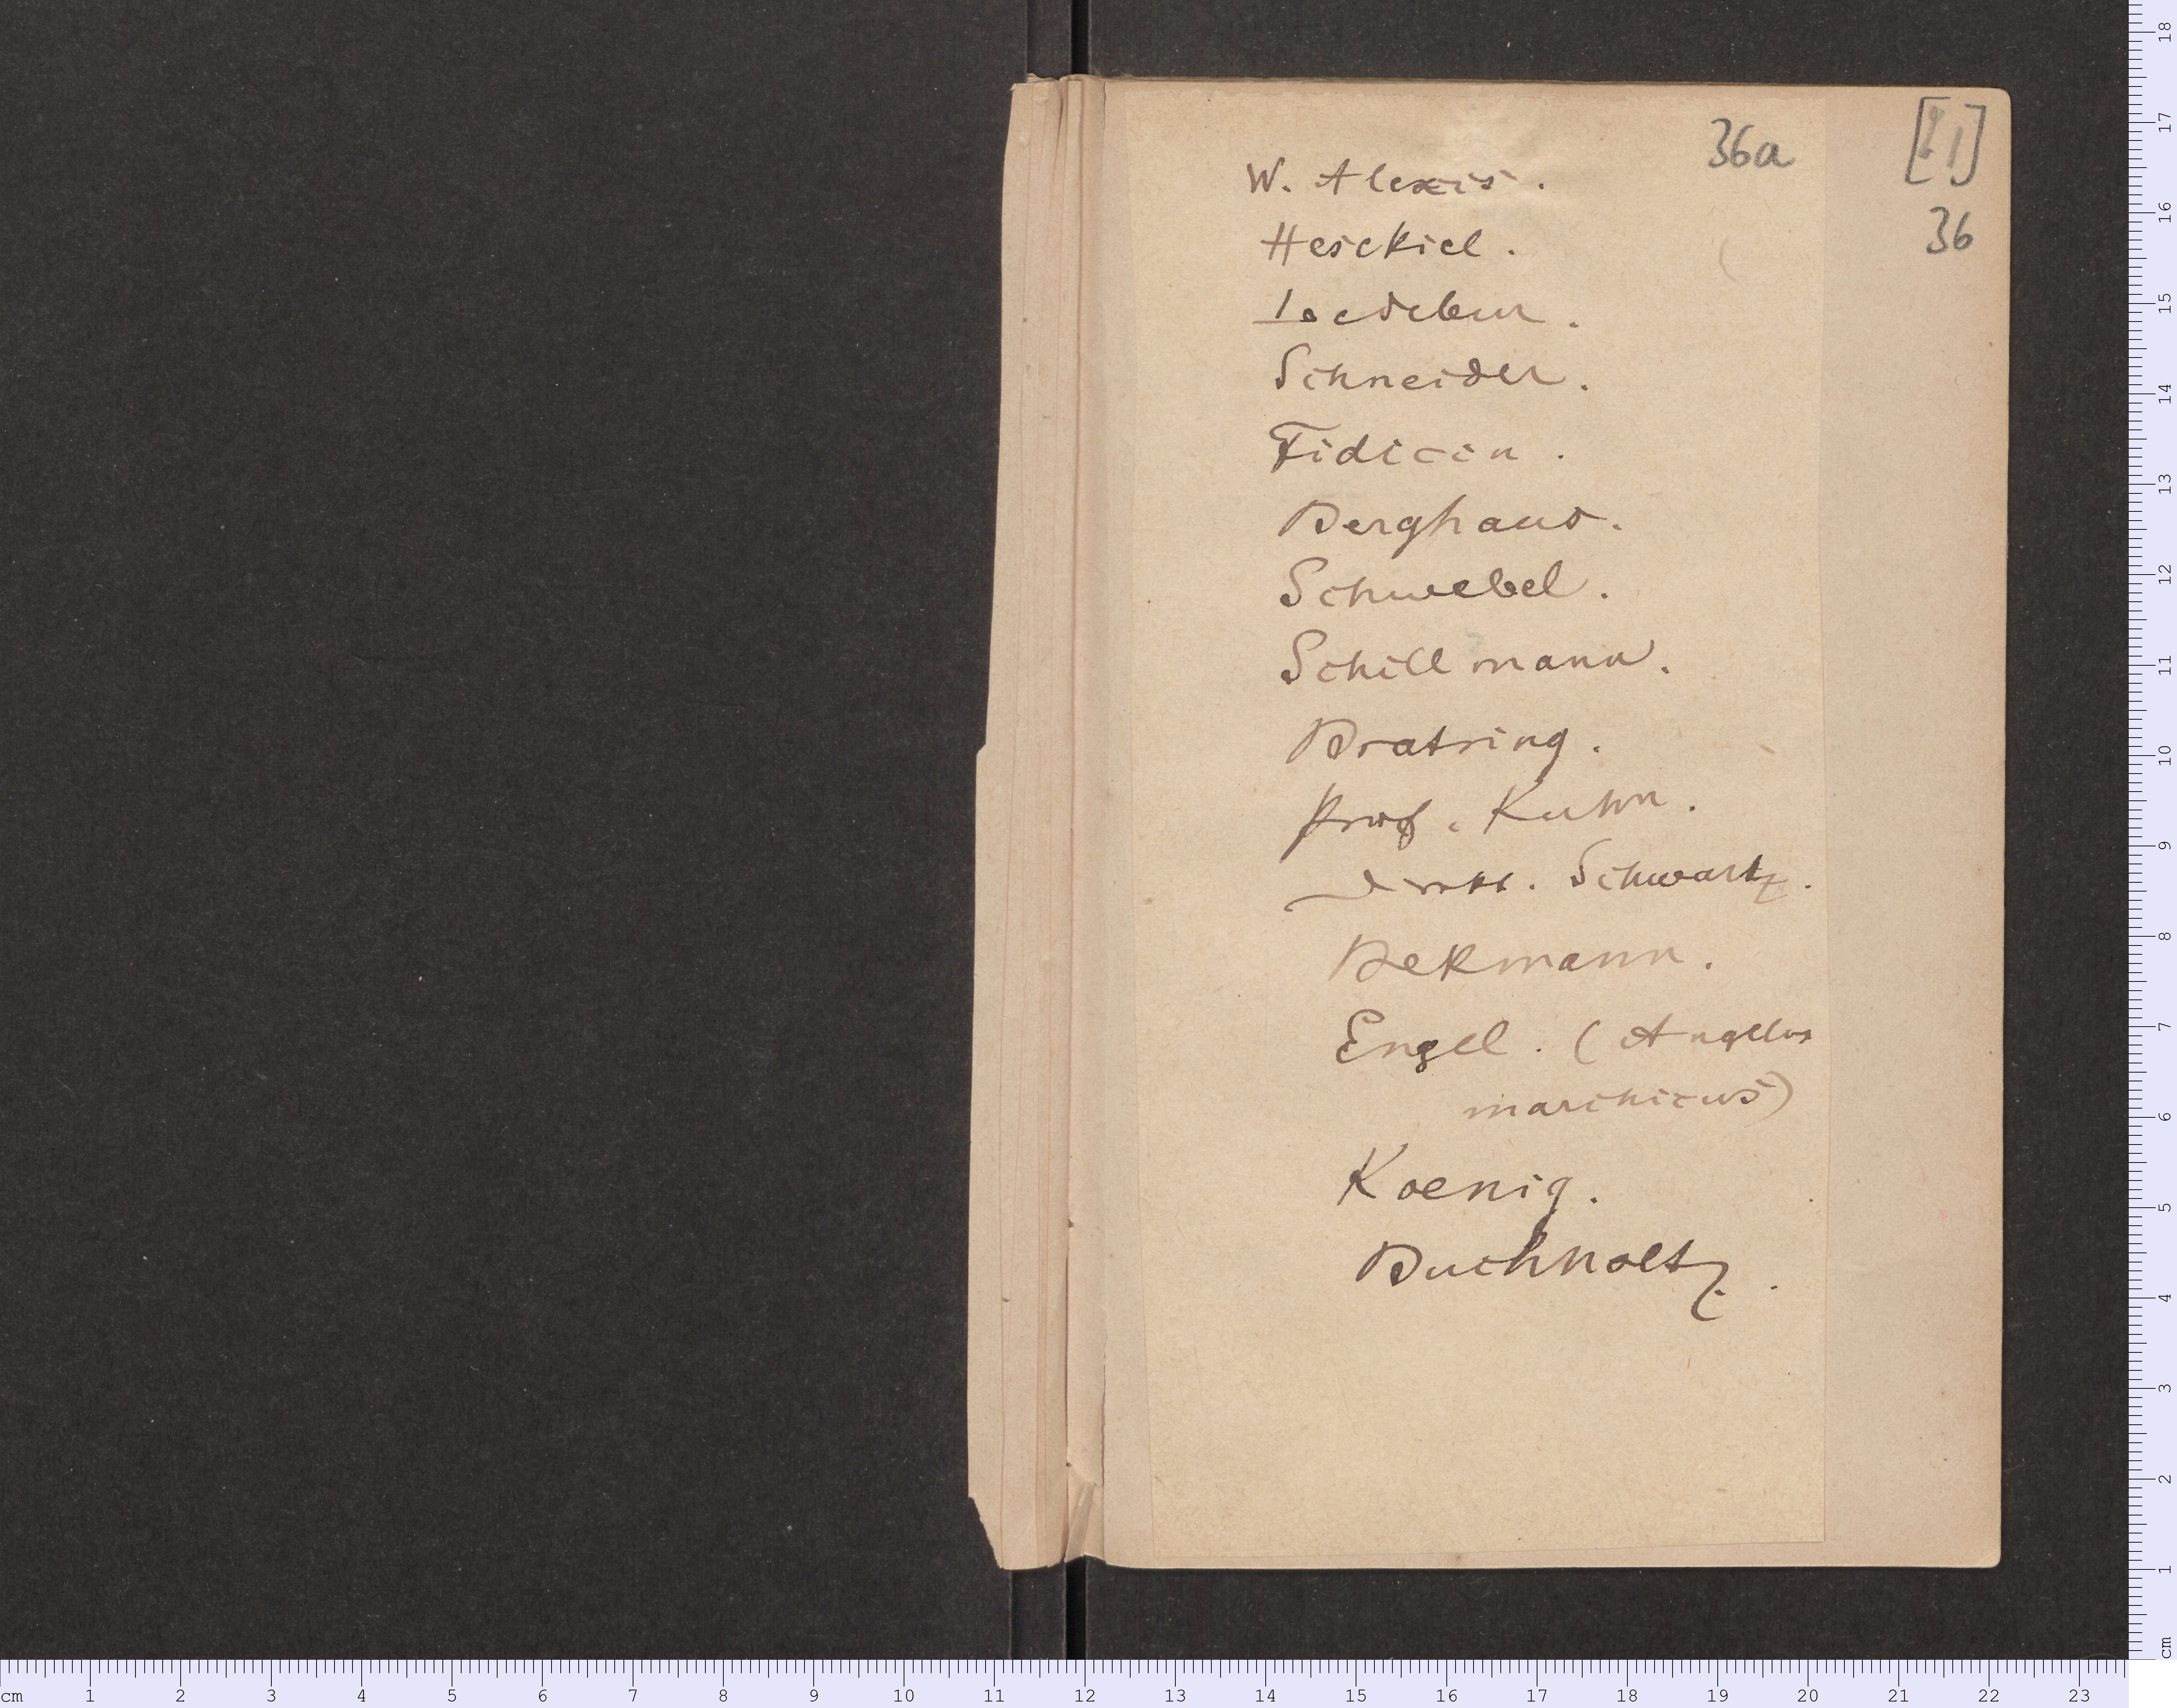 36a
36
W. Alexis.
Hesekiel.
Ledebur.
Schneider.
Fidicin.
Berghaus.
Schwebel.
Schillmann.
Bratring.
Prof. Kuhn.
Direkt. Schwartz.
Bekmann.
Engel. (Angelus
marchicus)
Koenig.
Buchholtz.